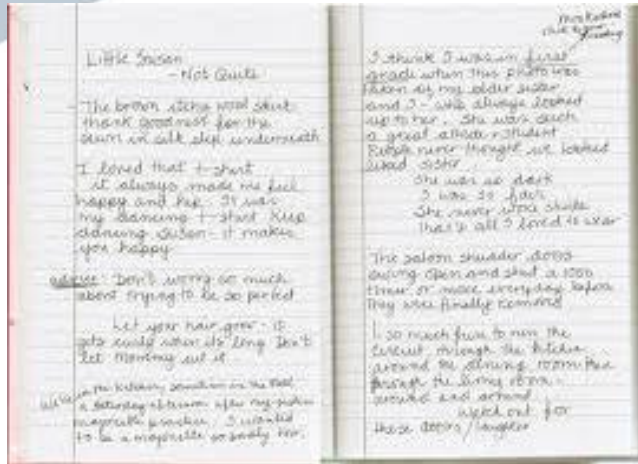 Little Susan
- Not Quite
The brown itchy wool skirt
thank goodness for the
sewn in silk slip underneath
I loved that t-shirt
it always made me feel
happy and hip. It was
my dancing t-shirt Keep
dancing Susan - it makes
you happy
advice: Don't worry so much
about trying to be so perfect
Let your hair grow - it
gets curly when its long Don't
let Mommy cut it
We're in the kitchen, sometime in the
a Saturday afternoon after my sisters
majorette practice. I wanted
to be a majorette so badly too.
this before
I think I was in first
grade when this photo was
taken of my older sister
and I - who always looked
up to her. She was such
a great student
People never thought we looked
liked sisters
She was so dark
I was so fair
She never wore
That's all I loved to wear
The saloon doors
swing open and shut a 1000
times or more everyday before
they were finally removed
so much fun to run the
circuit through the kitchen
around the dining room then
through the living room -
around and around
watch out for
those doors/laughter